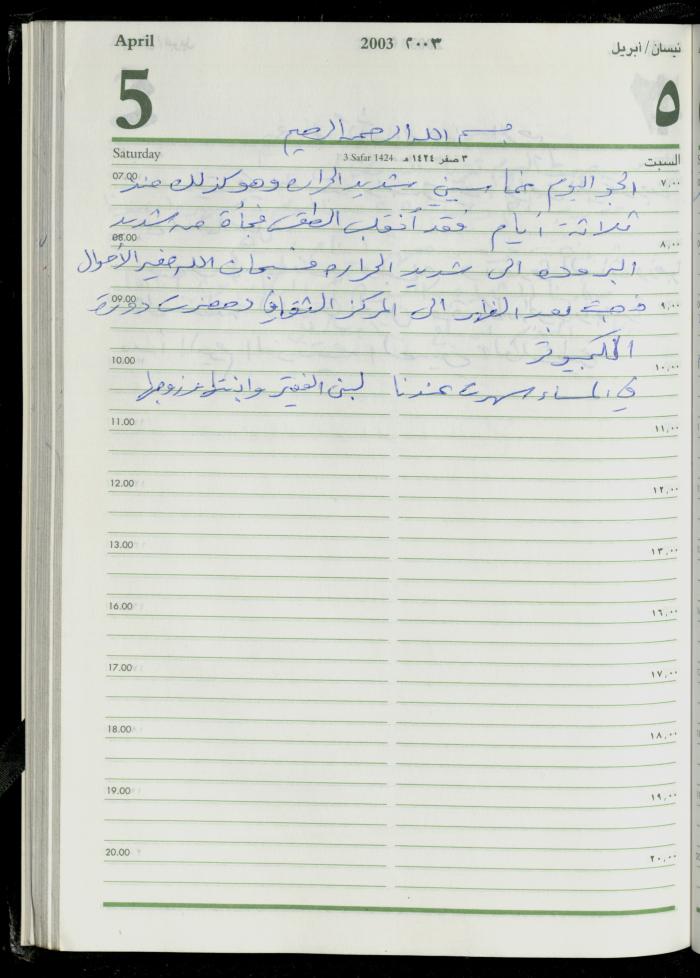 April 2003 ٢٠٠٣ نيسان/أبريل
5 ٥
بسم الله الرحمن الرحيم
Saturday 3 Safar 1424 ٣ صفر ١٤٢٤ هـ السبت
07.00 ٧,٠٠
الجو اليوم خماسيني شديد الحراره وهو كذلك منذ
ثلاثة أيام فقد أنقلب الطقس فجأة من شديد
08.00 ٨,٠٠
البروده الى شديد الحراره فسبحان الله مغير الأحوال
09.00 ٩,٠٠
ذهبت بعد الظهر الى المركز الثقافي وحضرت دورة
الكمبيوتر
10.00 ١٠,٠٠
في المساء سهرت عندنا لبنى الفقير وابنتها وزوجها
11.00 ١١,٠٠
12.00 ١٢,٠٠
13.00 ١٣,٠٠
16.00 ١٦,٠٠
17.00 ١٧,٠٠
18.00 ١٨,٠٠
19.00 ١٩,٠٠
20.00 ٢٠,٠٠